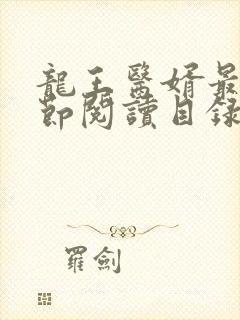 龍王醫婿最
節閱讀目錄
羅劍